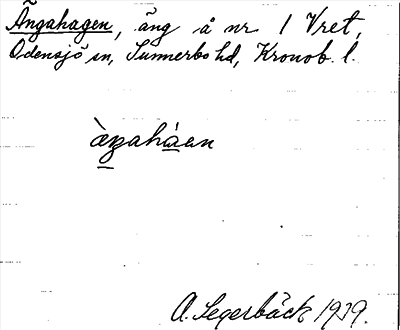 Ängahagen, äng å nr 1 Vret,
Odensjö sn, Sunnerbo hd, Kronob. l.
àŋahàan
A. Segerbäck 1939.